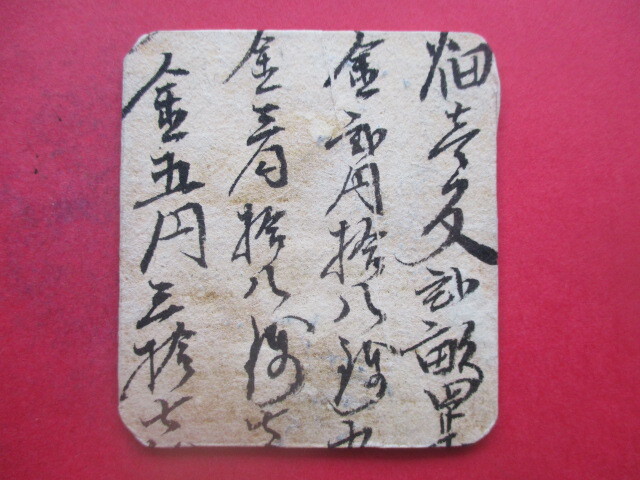 畑壱反弐畝四歩
金弐円拾八銭
金三円拾八銭七
金五円三拾七